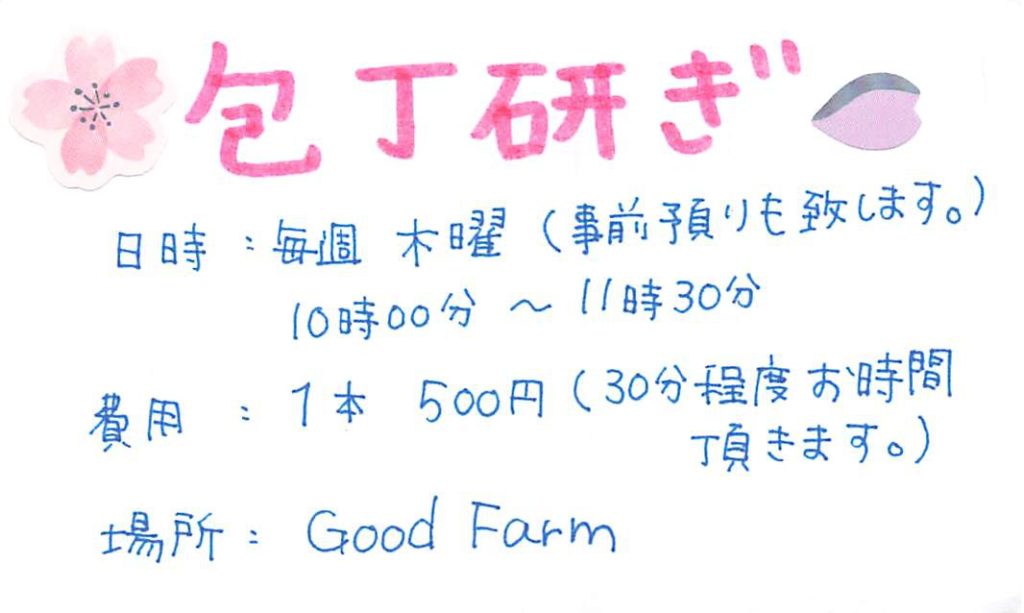 包丁研ぎ
日時：毎週 木曜（事前予預りも致します。）
10時00分 〜 11時30分
費用：1本 500円（30分程度お時間
頂きます。）
場所：Good Farm